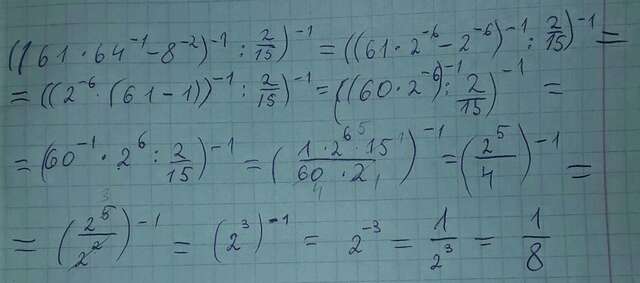 ((61·64⁻¹-8⁻²)⁻¹:2/15)⁻¹=((61·2⁻⁶-2⁻⁶)⁻¹:2/15)⁻¹=
=((2⁻⁶·(61-1))⁻¹:2/15)⁻¹=((60·2⁻⁶)⁻¹:2/15)⁻¹=
=(60⁻¹·2⁶:2/15)⁻¹=(1·2⁶·15/60·2)⁻¹=(2⁵/4)⁻¹=
=(2⁵/2²)⁻¹=(2³)⁻¹=2⁻³=1/2³=1/8